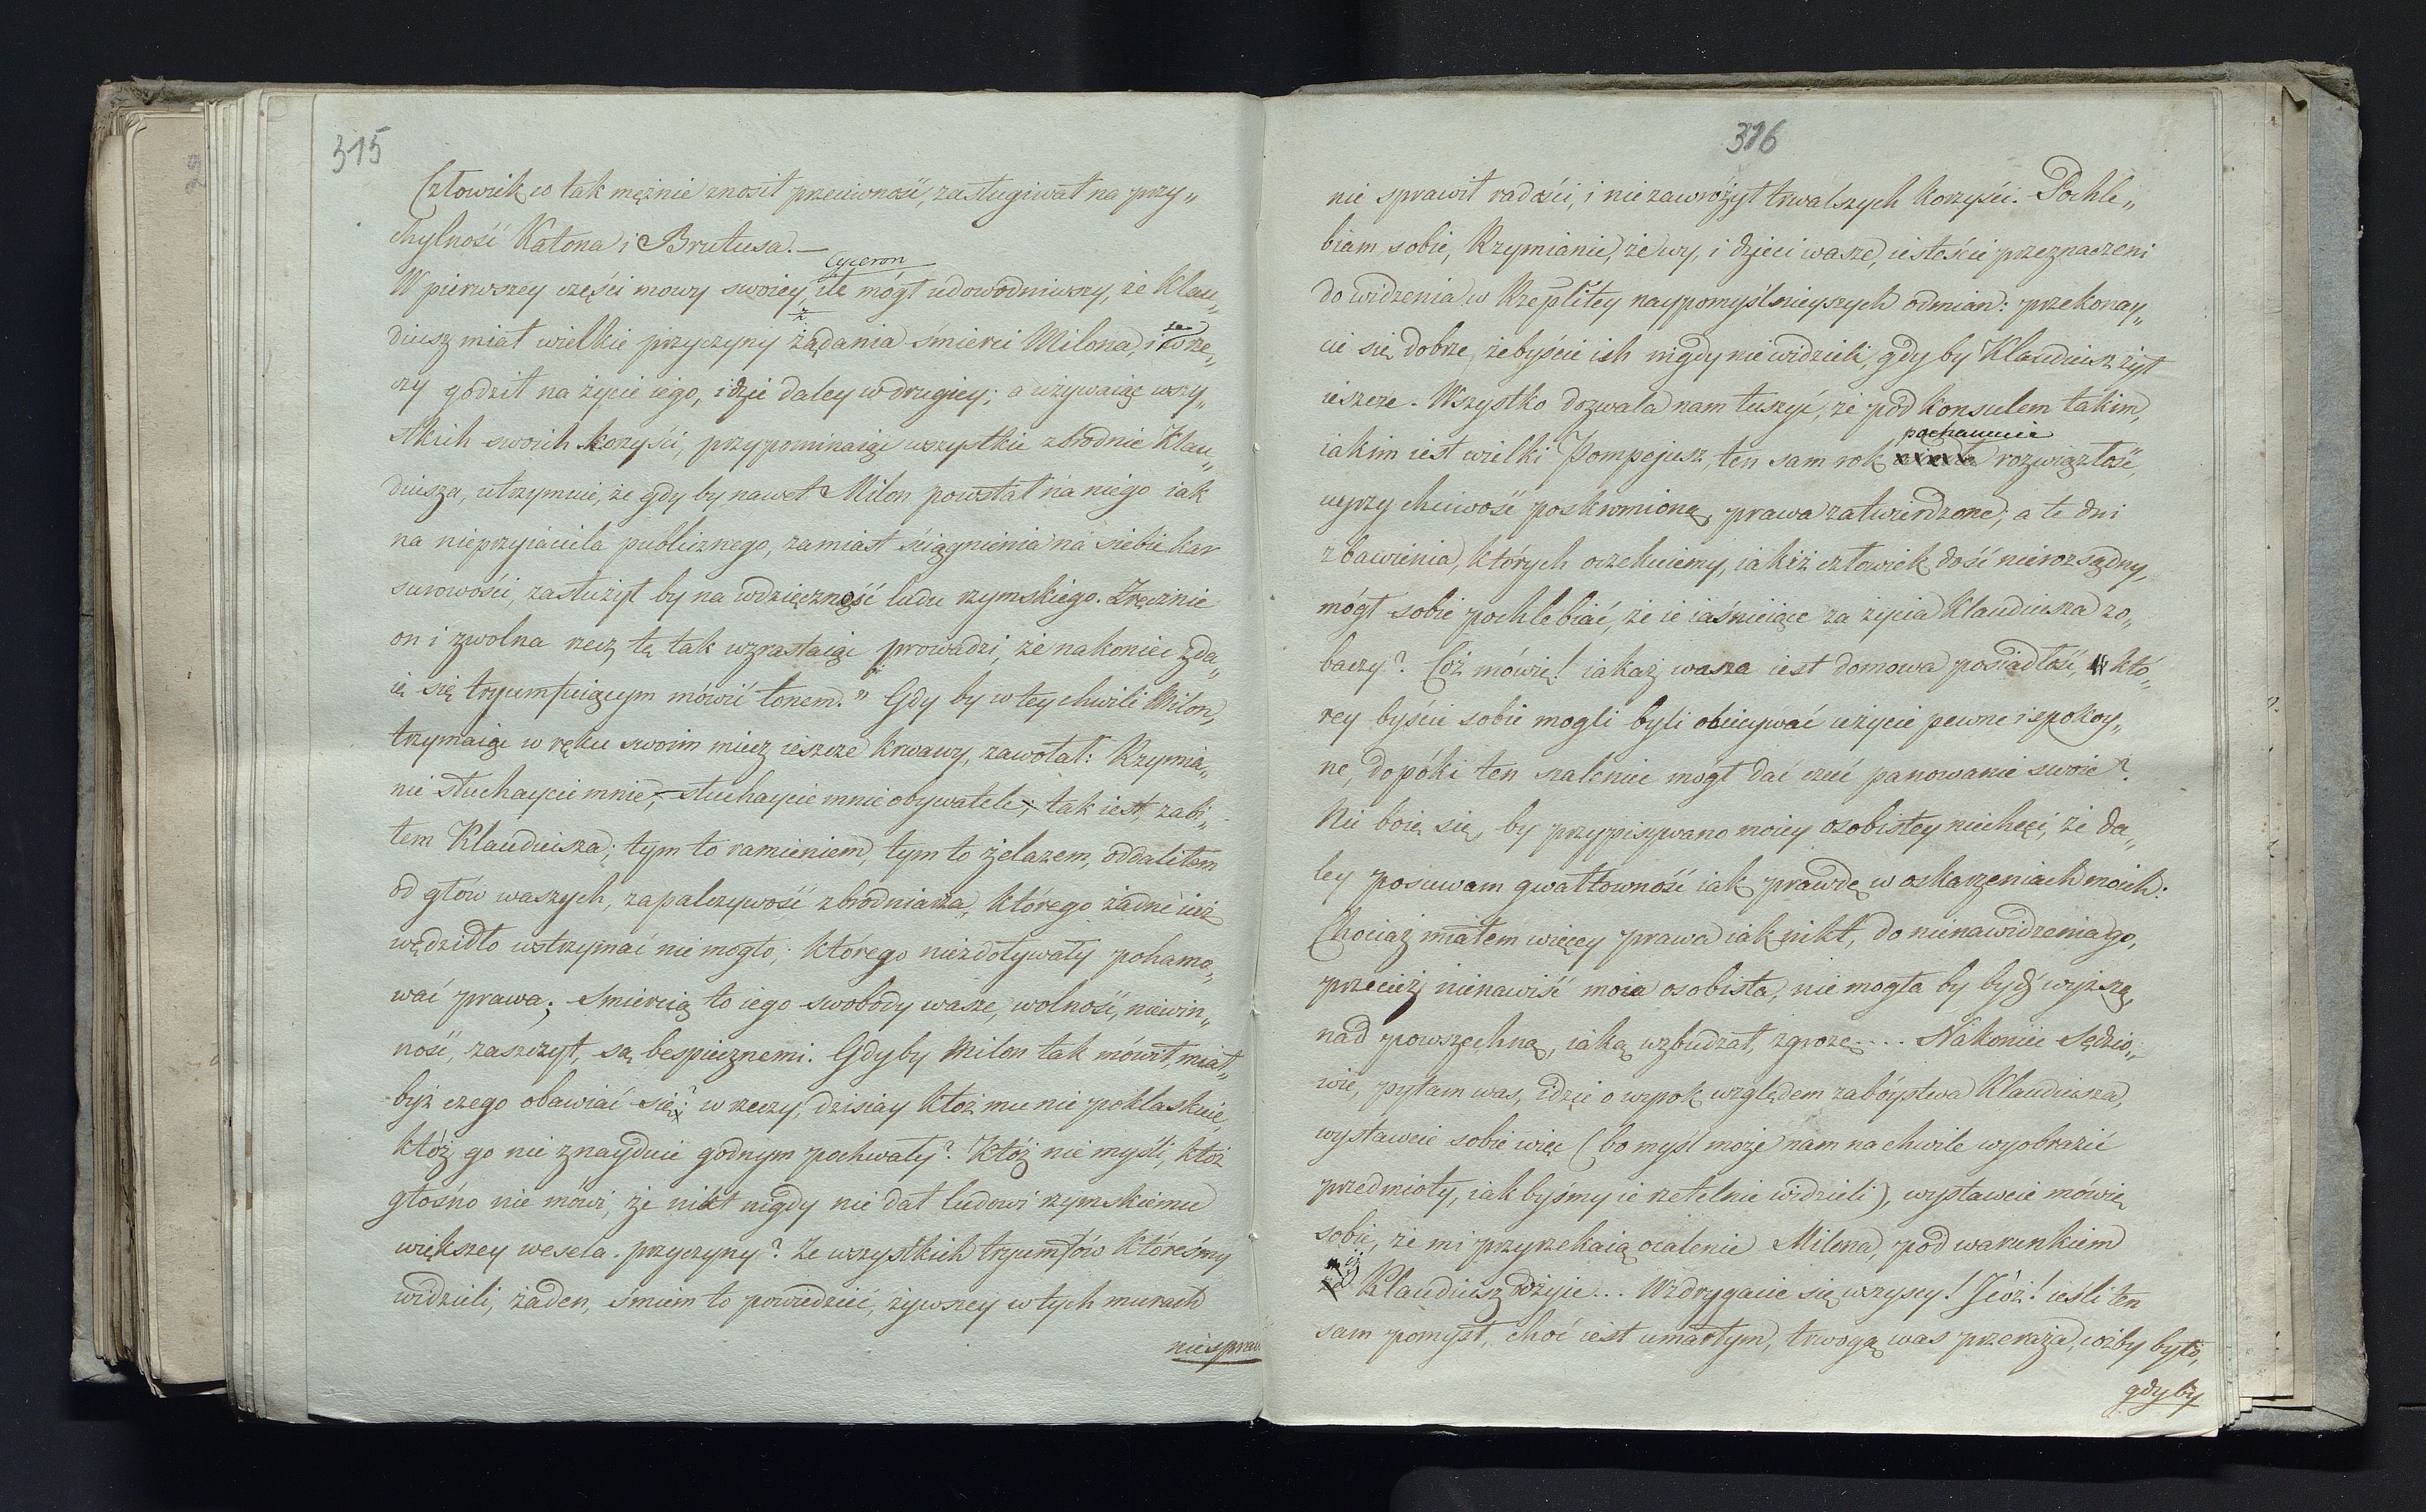 315
Człowiek co tak mężnie znosił przeciwność, zasługiwał na przy„
chylność Katona i Brutusa.—
Cyceron
W pierwszey części mowy swoiey, ile mógł udowodniwszy, że Klau„
diusz miał wielkie przyczyny żądania śmierci Milona, i że w rze„
czy godził na życie iego, idzie daley w drugiey; a używaiąc wszy„
stkich swoich korzyści, przypominaiąc wszystkie zbrodnie Klau„
diusza, utrzymuie, że gdy by nawet Milon powstał na niego iak
na nieprzyiaciela publicznego, zamiast ściągnienia na siebie kar
surowości, zasłużył by na wdzięczność ludu rzymskiego. Zręcznie
on i zwolna rzecz tę tak wzrastaiąc prowadzi, że nakoniec zda„
ie się tryumfuiącym mówić tonem." Gdy by w tey chwili Milon,
trzymaiąc w ręku swoim miecz ieszcze krwawy, zawołał: Rzymia„
nie słuchaycie mnie, słuchaycie mnie obywatele; tak iest, zabi„
łem Klaudiusza; tym to ramieniem, tym to żelazem, oddaliłem
od głów waszych, zapalczywość zbrodniarza, którego żadne iuż
wędzidło wstrzymać nie mogło; którego niezdoływały pohamo„
wać prawa; śmiercią to iego swobody wasze, wolność, niewin„
ność, zaszczyt, są bespiecznemi. Gdyby Milon tak mówił, miał„
byż czego obawiać się? w rzeczy, dzisiay któż mu nie poklaskuie,
któż go nie znayduie godnym pochwały? Któż nie myśli, któż
głośno nie mówi, że nikt nigdy nie dał ludowi rzymskiemu
większey wesela przyczyny? Ze wszystkich tryumfów któreśmy
widzieli, żaden, śmiem to powiedzieć, żywszey w tych murach
nie spraw
316
nie sprawił radości, i nie zawróżył trwalszych korzyści. Pochle„
biam sobie, Rzymianie, że wy, i dzieci wasze, iesteście przeznaczeni
do widzenia w Rzeplitey naypomyślnieyszych odmian: przekonay„
cie się dobrze, żebyście ich nigdy nie widzieli, gdy by Klaudiusz żył
ieszcze. Wszystko dozwala nam tuszyć, że pod konsulem takim,
pochamuie
iakim iest wielki Pompejusz, ten sam rok rozwiązłość,
uyrzy chciwość poskromioną, prawa zatwierdzone; a te dni
zbawienia, których oczekuiemy, iakiż człowiek dość nierozsądny,
mógł sobie pochlebiać, że ie iaśnieiące za życia Klaudiusza zo„
baczy? Cóż mówię! iakaż wasza iest domowa posiadłość, któ„
rey byście sobie mogli byli obiecywać użycie pewne i spokoy„
ne, dopóki ten szaleniec mógł dać czuć panowanie swoie?
Nie boię się, by przypisywano moiey osobistey niechęci, że da„
ley posuwam gwałtowność iak prawdę w oskarżeniach moich:
Chociaż miałem więcey prawa iak nikt, do nienawidzenia go,
przecież nienawiść moia osobista, nie mogła by bydź wyższą,
nad powszechną, iaką wzbudzał, zgrozę.... Nakoniec Sędzio„
wie, pytam was, idzie o wyrok względem zabóystwa Klaudiusza,
wystawcie sobie więc (bo myśl może nam na chwile wyobrazić
przedmioty, iak byśmy ie rzetelnie widzieli), wystawcie mówię
sobie, że mi przyrzekaią ocalenie Milona, pod warunkiem
iż Klaudiusz ożyie... Wzdrygacie się wszyscy! I cóż! ieśli ten
sam pomysł, choć iest umarłym, trwogą was przeraża, cóż by było,
gdyby